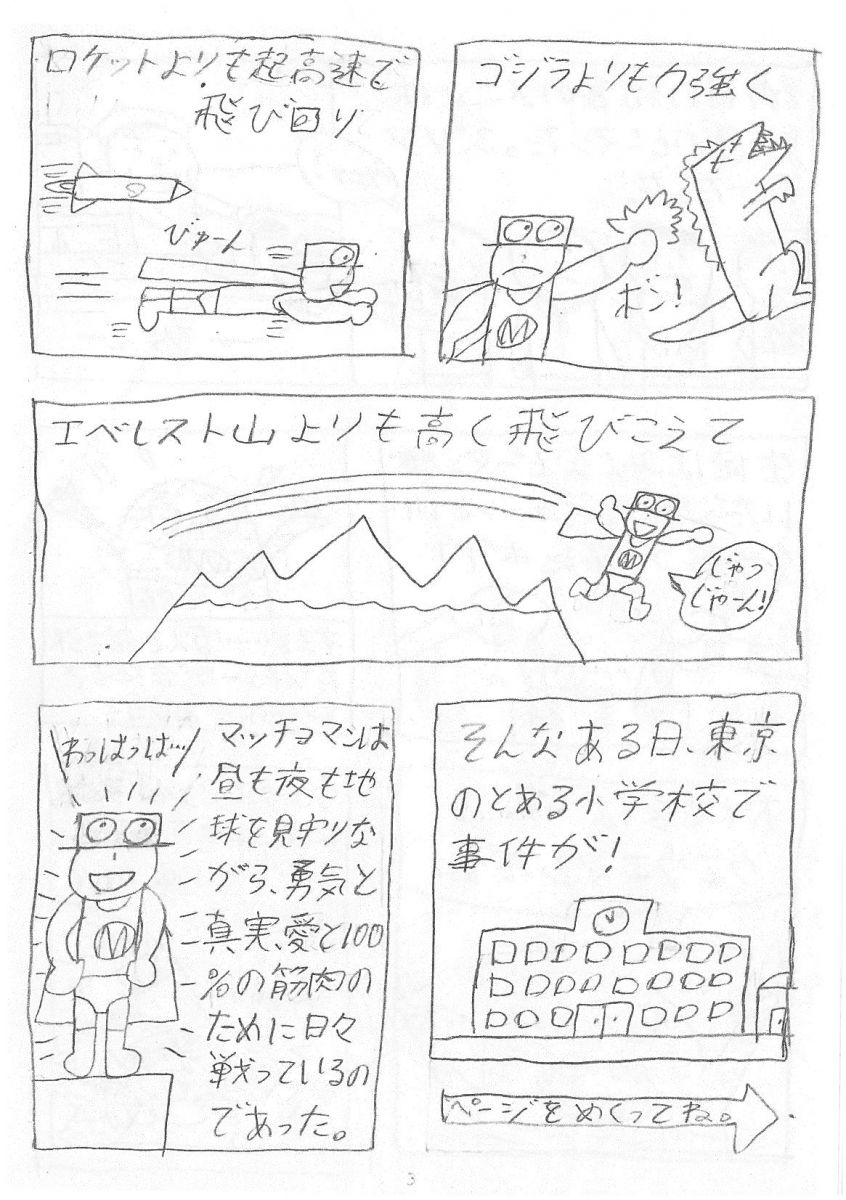 ロケットよりも起高速で
飛び回り
びゅーん
ゴジラよりも力強く
ボン!
M
エベレスト山よりも高く飛びこえて
M
じゃっ
じゃーん!
わっはっは…
マッチョマンは
昼も夜も地
球を見守りな
がら、勇気と
真実、愛と100
%の筋肉の
ために日々
戦っているの
であった。
M
そんなある日、東京
のとある小学校で
事件が!
ページをめくってね。
3